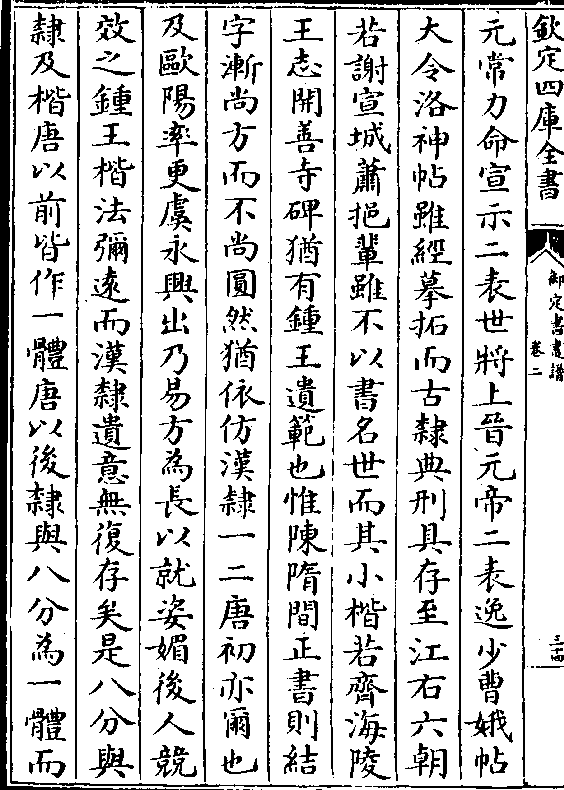 欽定四庫全書
御定書畫譜
卷二
三十四
元常力命宣示二表世將上晉元帝二表逸少曹娥帖
大令洛神帖雖經摹拓而古隸典刑具存至江右六朝
若謝宣城蕭挹輩雖不以書名世而其小楷若齊海陵
王志開善寺碑猶有鍾王遺範也惟陳隋間正書則結
字漸尚方而不尚圓然猶依仿漢隸一二唐初亦爾也
及歐陽率更虞永興出乃易方為長以就姿媚後人競
效之鍾王楷法彌遠而漢隸遺意無復存矣是八分與
隸及楷唐以前皆作一體唐以後隸與八分為一體而